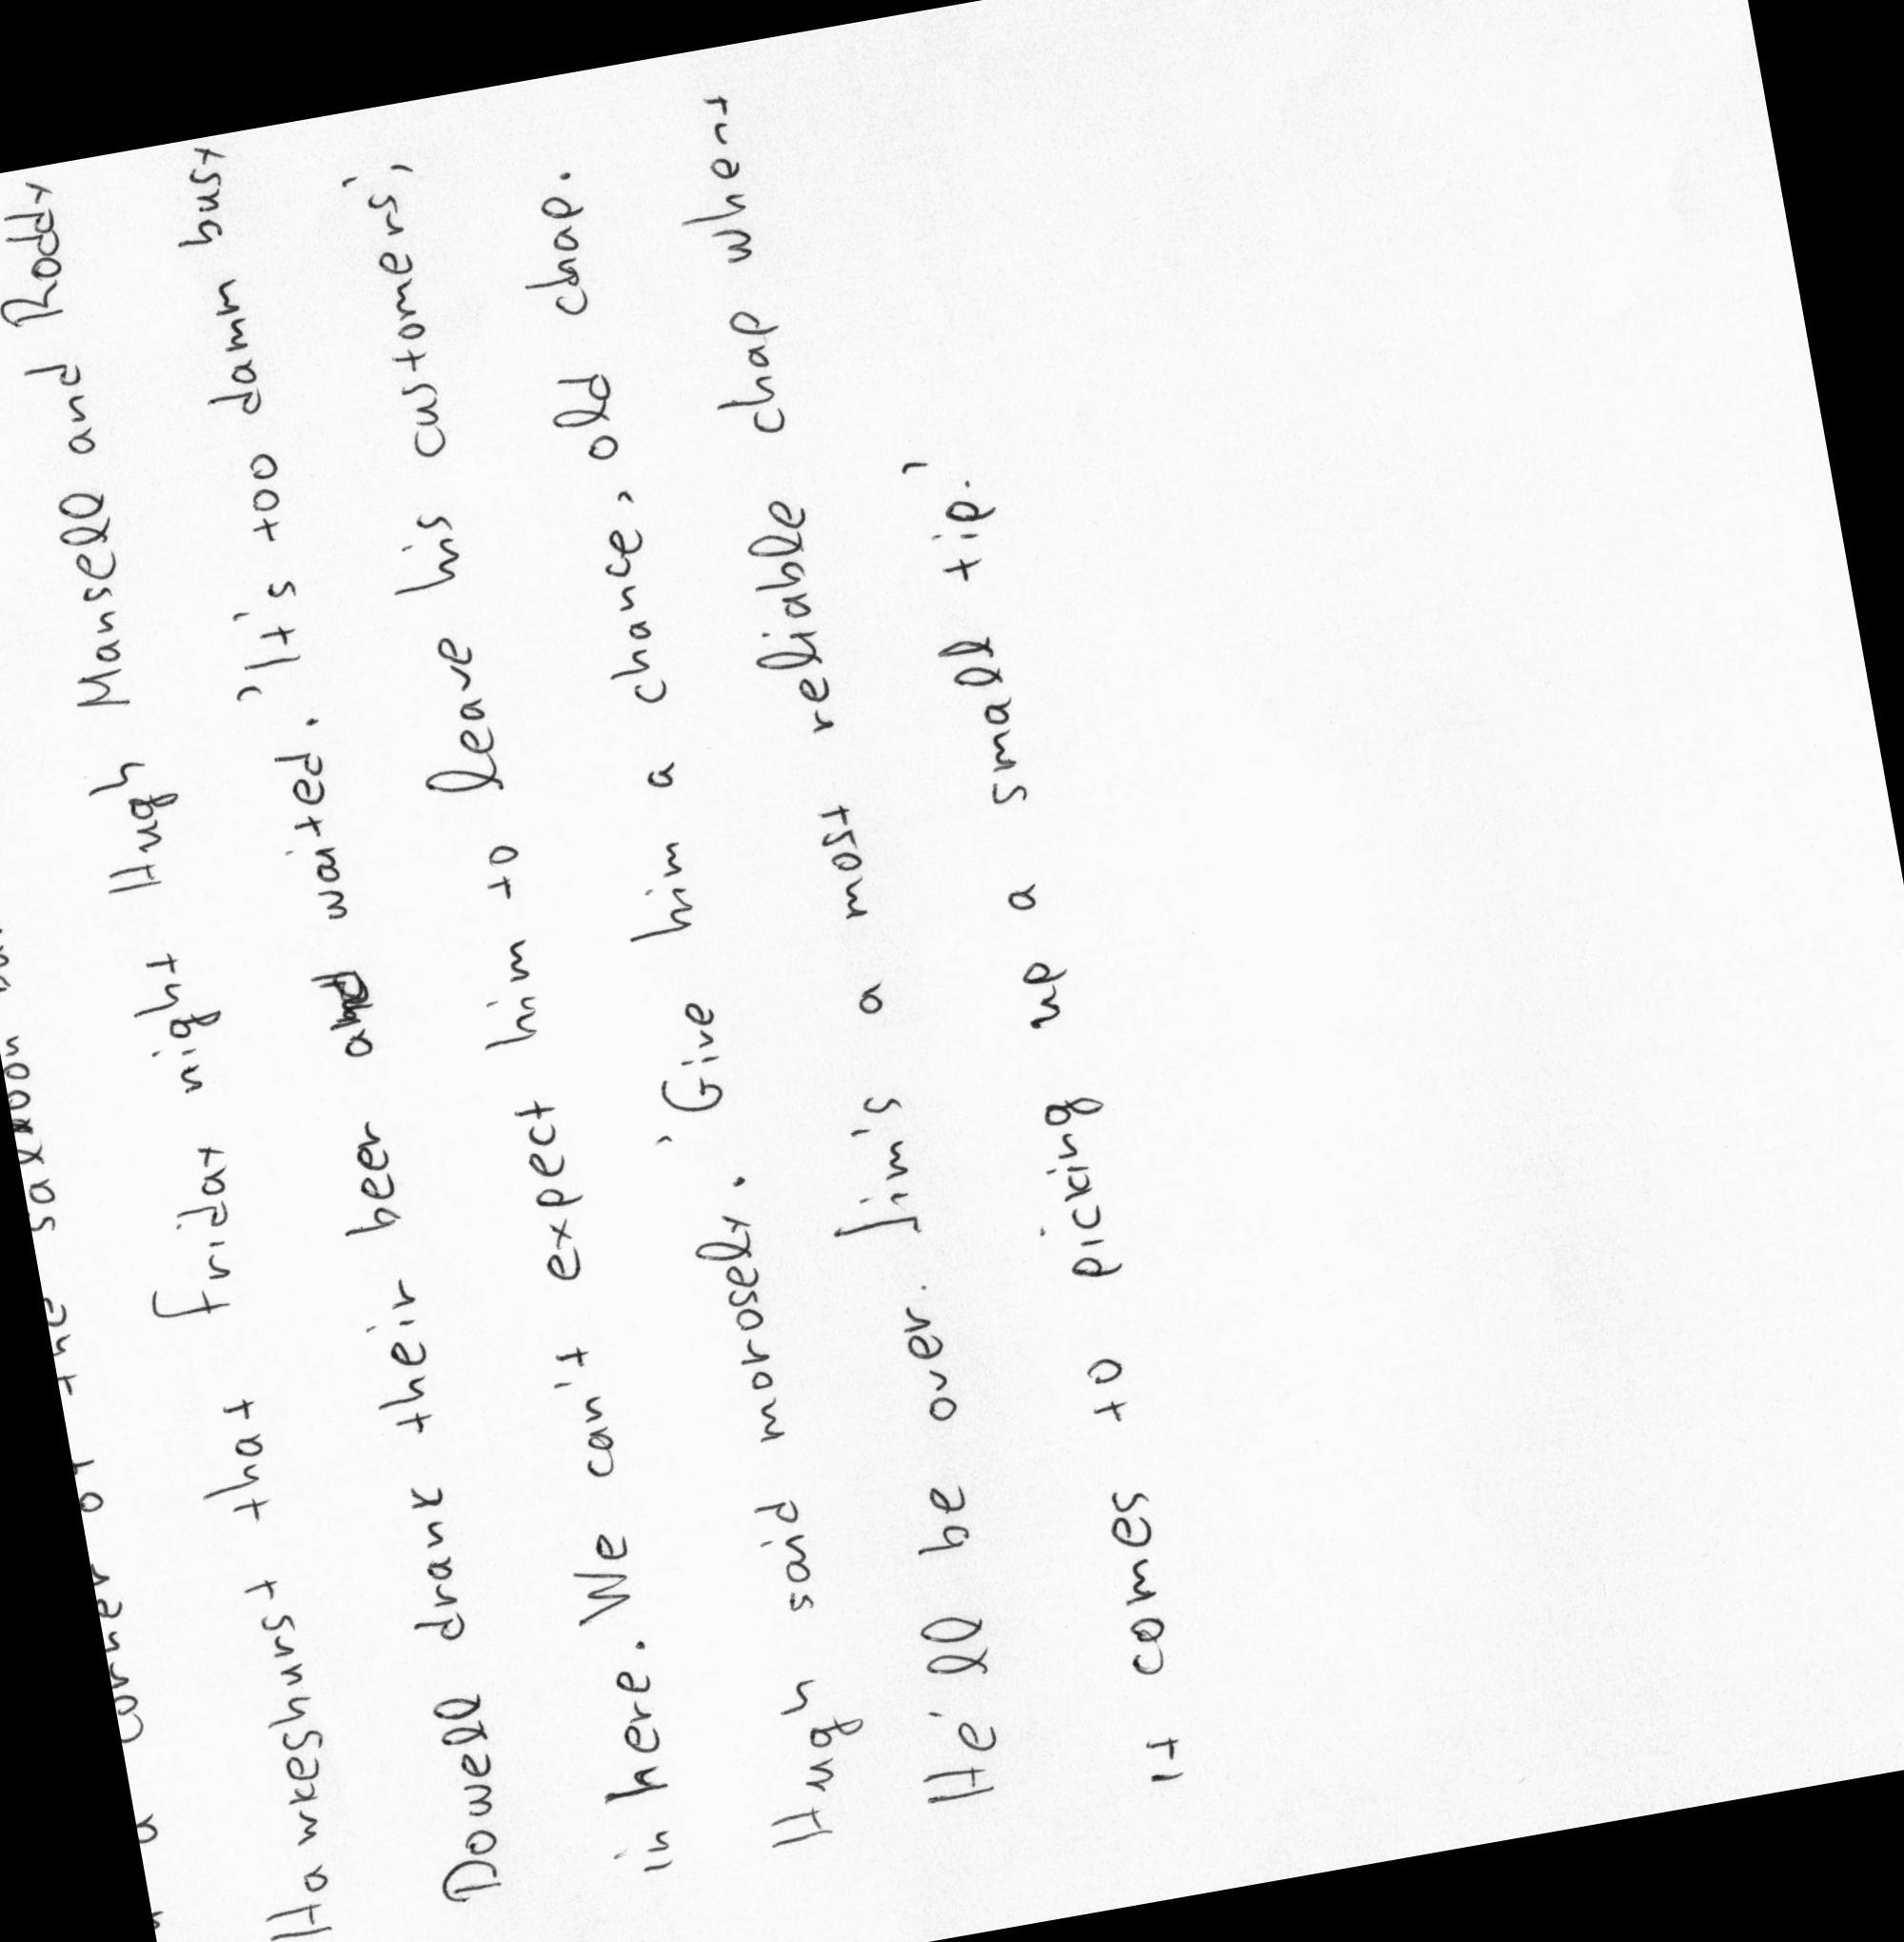 corner of the saloon
Hawkeshurst that Friday night Hugh Mansell and Roddy
Dowell drank their beer and waited. 'It's too damn busy
in here. We can't expect him to leave his customers,'
Hugh said morosely. 'Give him a chance, old chap.
He'll be over. Jim's a most reliable chap when
it comes to picking up a small tip.'